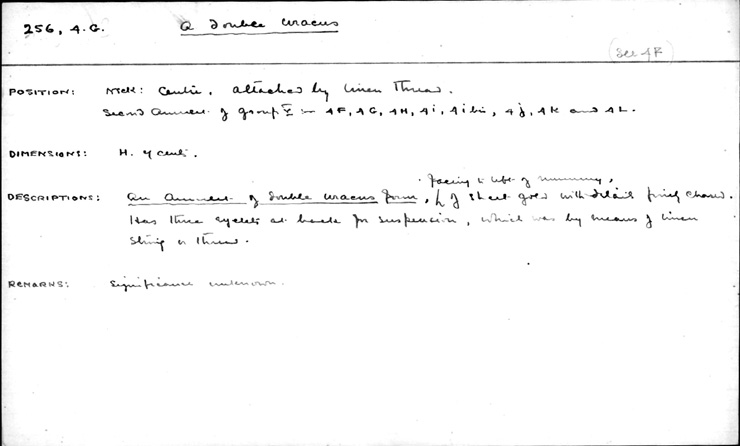 256, 4.G. A double uraeus
(See 4F)
POSITION: Neck: Centre, attached by linen thread.
Second amulet of group V :- 4F, 4G, 4H, 4i, 4i bis, 4j, 4K and 4L.
DIMENSIONS: H. 7 cents.
facing to left of mummy,
DESCRIPTIONS: An amulet of double uraeus form, of sheet gold with details finely chased.
Has three eyelets at back for suspension, which was by means of linen
string or thread.
REMARKS: Significance unknown.